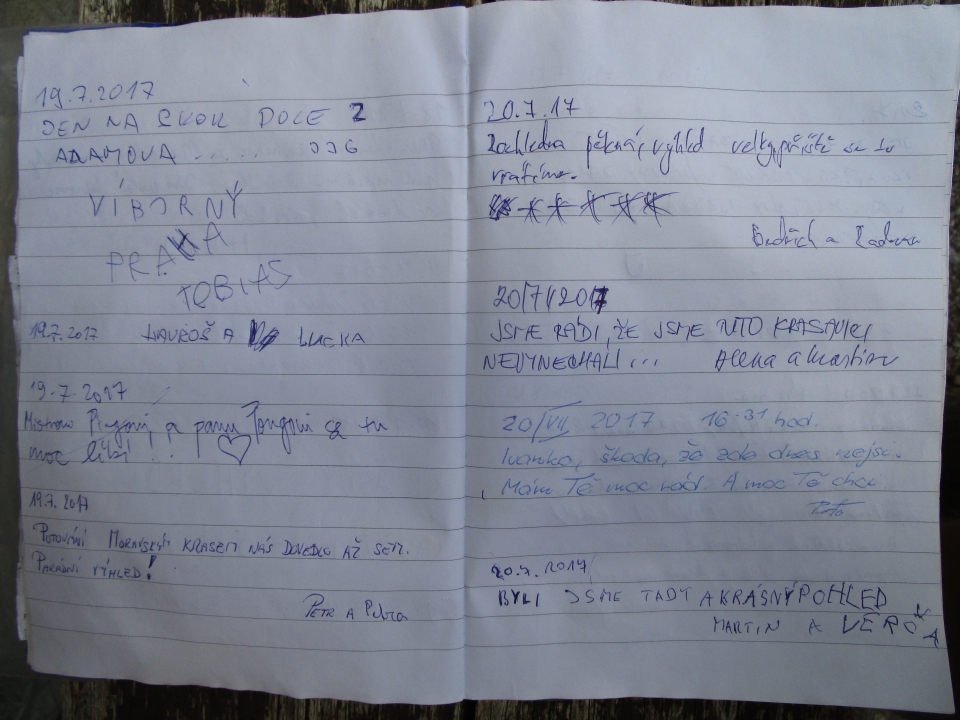 19.7.2017
DEN NA SKOK DOLE Z
ADAMOVA ..... JJG
VÍBORNÝ
PRAHA
TOBIAS
19.7.2017 A LUCKA
19.7.2017
a panu se tu
moc líbí!!
19.7.2017
PUTOVÁNÍ MORAVSKÝM KRASEM NÁS DOVEDLO AŽ SEM.
PARÁDNÍ VÝHLED!
PETR A Petra
20.7.17
Rozhledna pěkná, výhled velký, příště se
vrátíme.
Bedřich a
20/7/2017
JSME RÁDI, ŽE JSME TUTO KRÁSAVICI
NEVYNECHALI... Alena a Martin
20/VII 2017 16.31 hod.
Ivanko, škoda, že zde dnes nejsi.
Mám Tě moc rád. A moc Tě chci
20.7.2017
BYLI JSME TADY A KRÁSNÝ POHLED
MARTIN A VĚRČA